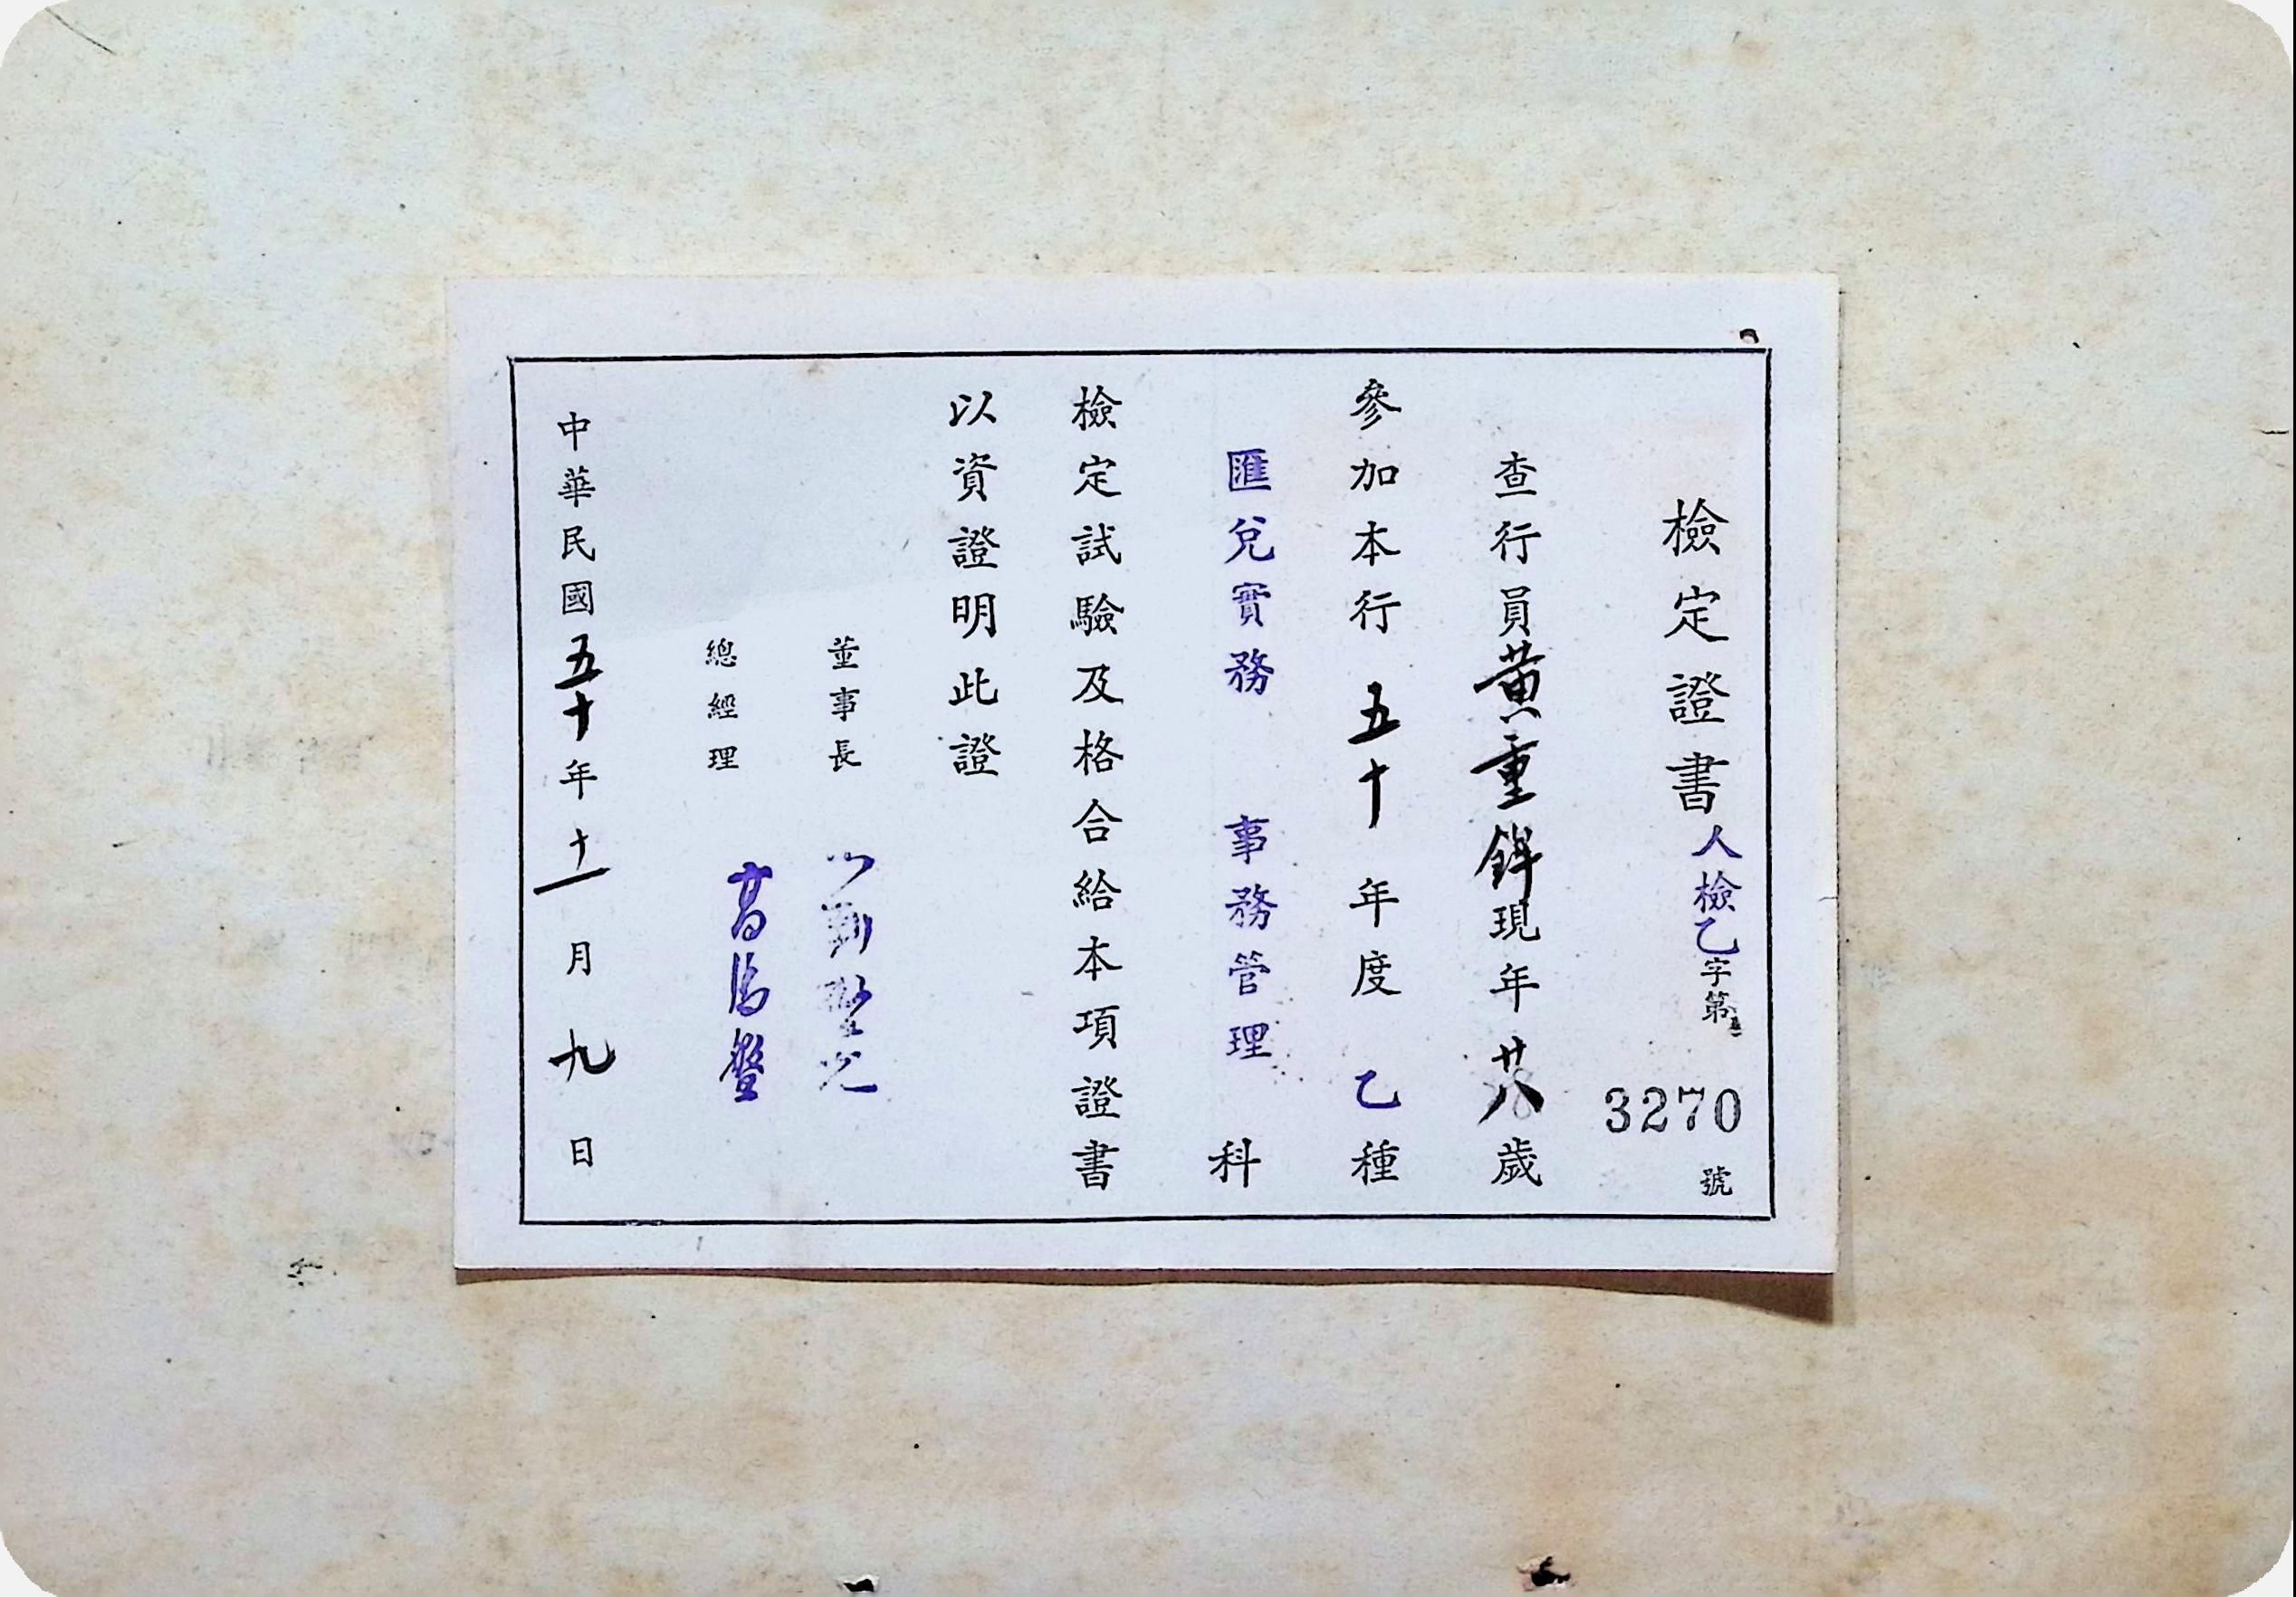 檢定證書 人檢乙字第3270號
查行員黃重鋒現年廿八歲
參加本行五十年度乙種
匯兌實務 事務管理 科
檢定試驗及格合給本項證書
以資證明此證
董事長
總經理 高
中華民國五十年十一月九日